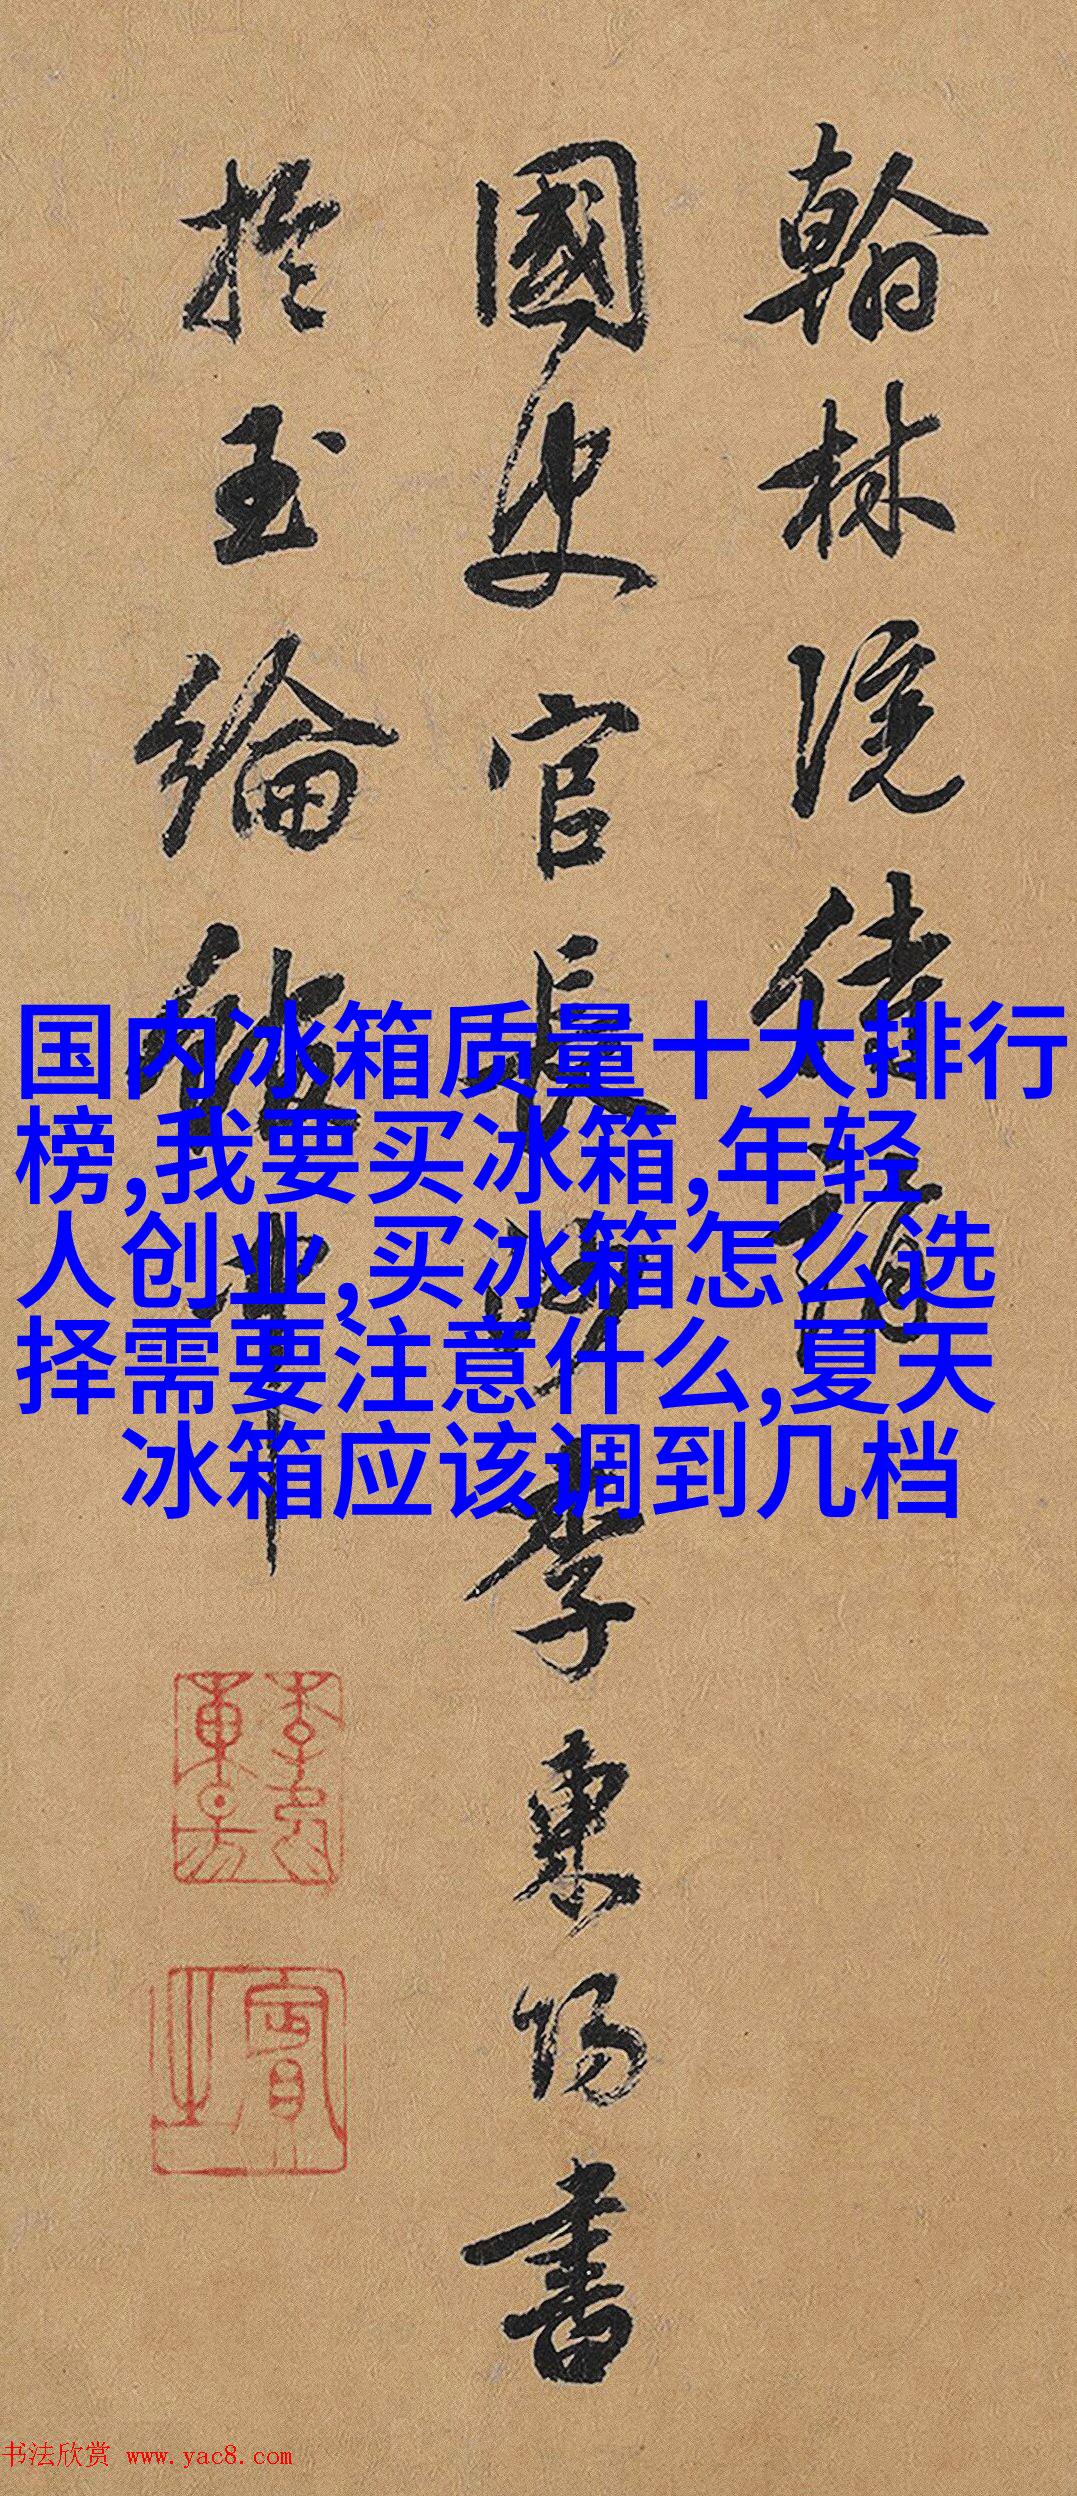 翰林院待詔
國史官長沙李東陽書
於玉綸
國内冰箱质量十大排行
榜,我要买冰箱,年轻
人创业,买冰箱怎么选
择需要注意什么,夏天
冰箱应该调到几档
书法欣赏 www.yac8.com